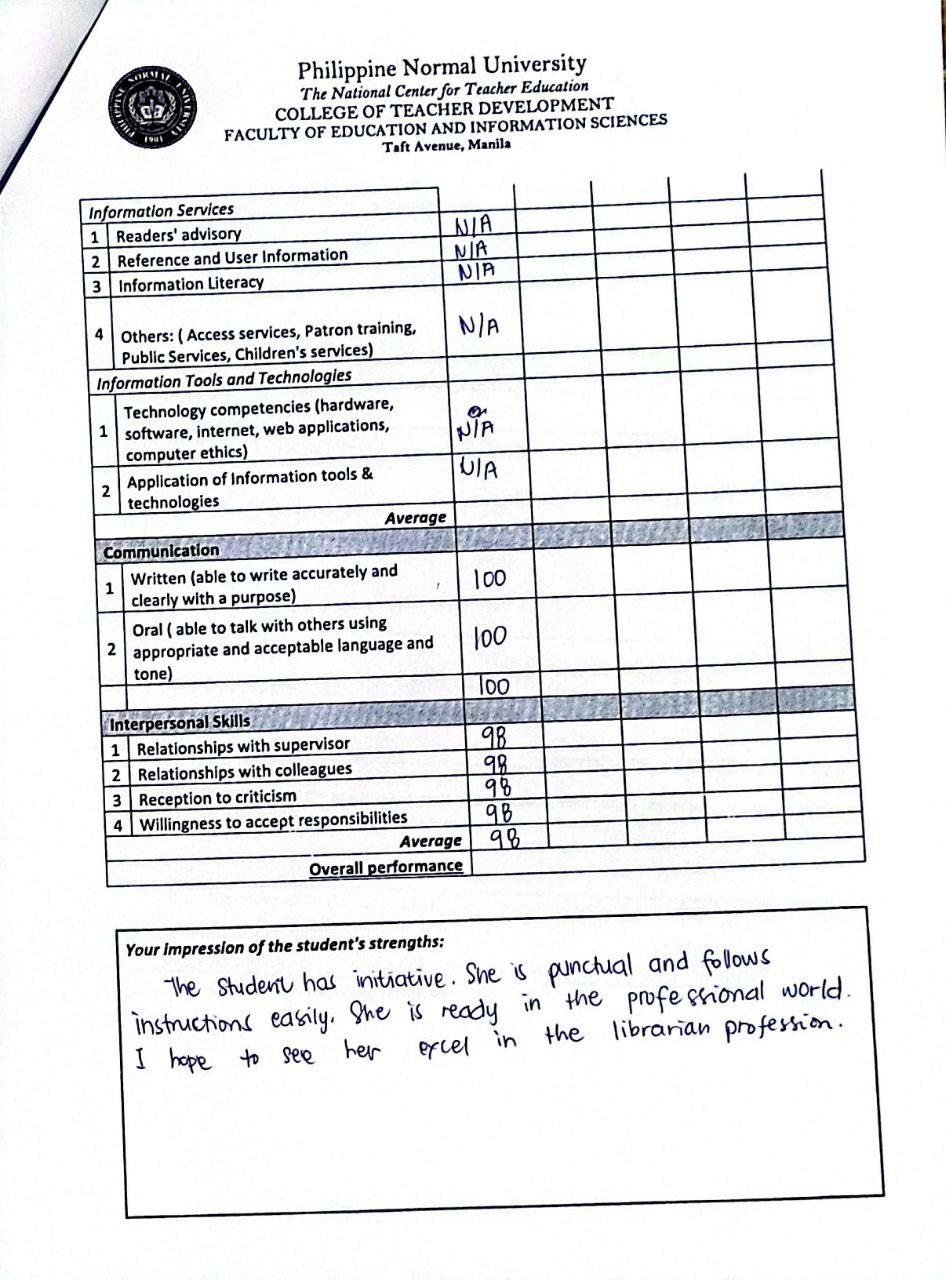 PHILIPPINE NORMAL UNIVERSITY
1901
Philippine Normal University
The National Center for Teacher Education
COLLEGE OF TEACHER DEVELOPMENT
FACULTY OF EDUCATION AND INFORMATION SCIENCES
Taft Avenue, Manila
Information Services
1 Readers' advisory N/A
2 Reference and User Information N/A
3 Information Literacy N/A
4 Others: ( Access services, Patron training, N/A
Public Services, Children's services)
Information Tools and Technologies
Technology competencies (hardware,
1 software, internet, web applications, N/A
computer ethics)
2 Application of Information tools & N/A
technologies
Average
Communication
1 Written (able to write accurately and 100
clearly with a purpose)
Oral ( able to talk with others using
2 appropriate and acceptable language and 100
tone)
100
Interpersonal Skills
1 Relationships with supervisor 98
2 Relationships with colleagues 98
3 Reception to criticism 98
4 Willingness to accept responsibilities 98
Average 98
Overall performance
Your impression of the student's strengths:
The student has initiative. She is punctual and follows
instructions easily. She is ready in the professional world.
I hope to see her excel in the librarian profession.